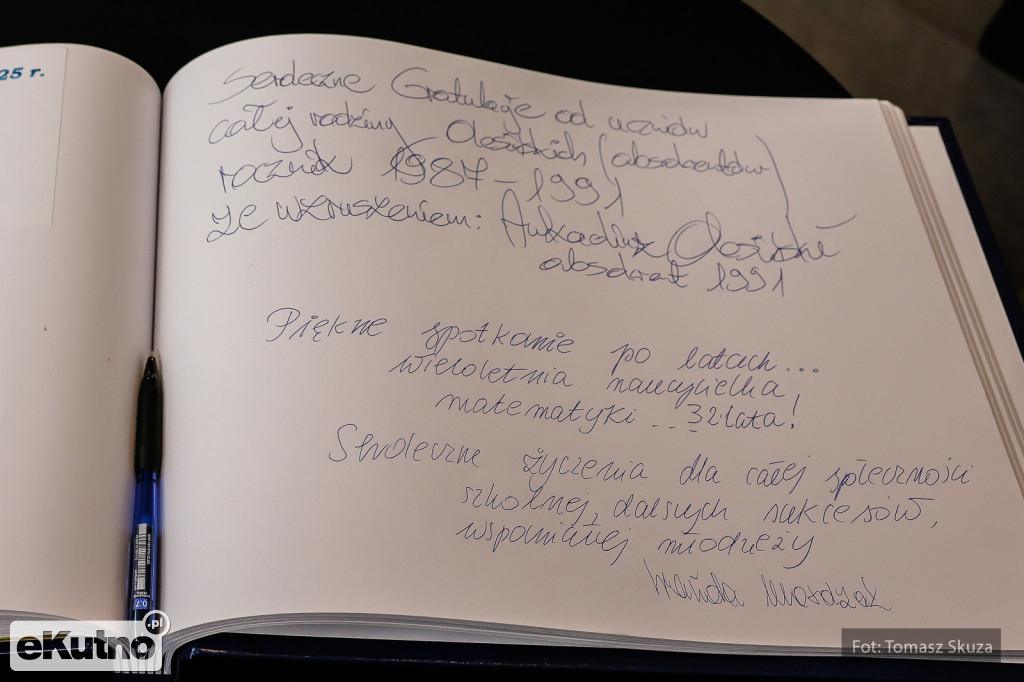 25 r.
Serdeczne Gratulacje od uczniów
całej rodziny Olesińskich (absolwentów)
rocznik 1987-1991
ze wzruszeniem: Arkadiusz
absolwent 1991
Piękne spotkanie po latach...
wieloletnia nauczycielka
matematyki... 32 lata!
Serdeczne życzenia dla całej społeczności
szkolnej, dalszych sukcesów,
wspaniałej młodzieży
Wanda
0,7
eKutno.pl
Fot: Tomasz Skuza